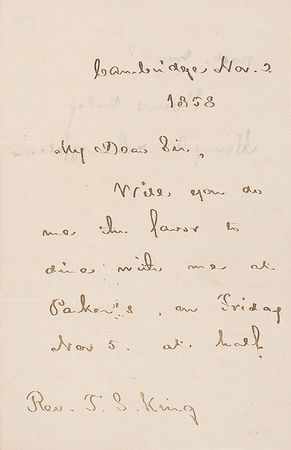 Cambridge, Nov. 2.
1858
My Dear Sir,
Will you do
me the favor to
dine with me at
Parker's, on Friday
Nov 5. at half
Rev. T. S. King